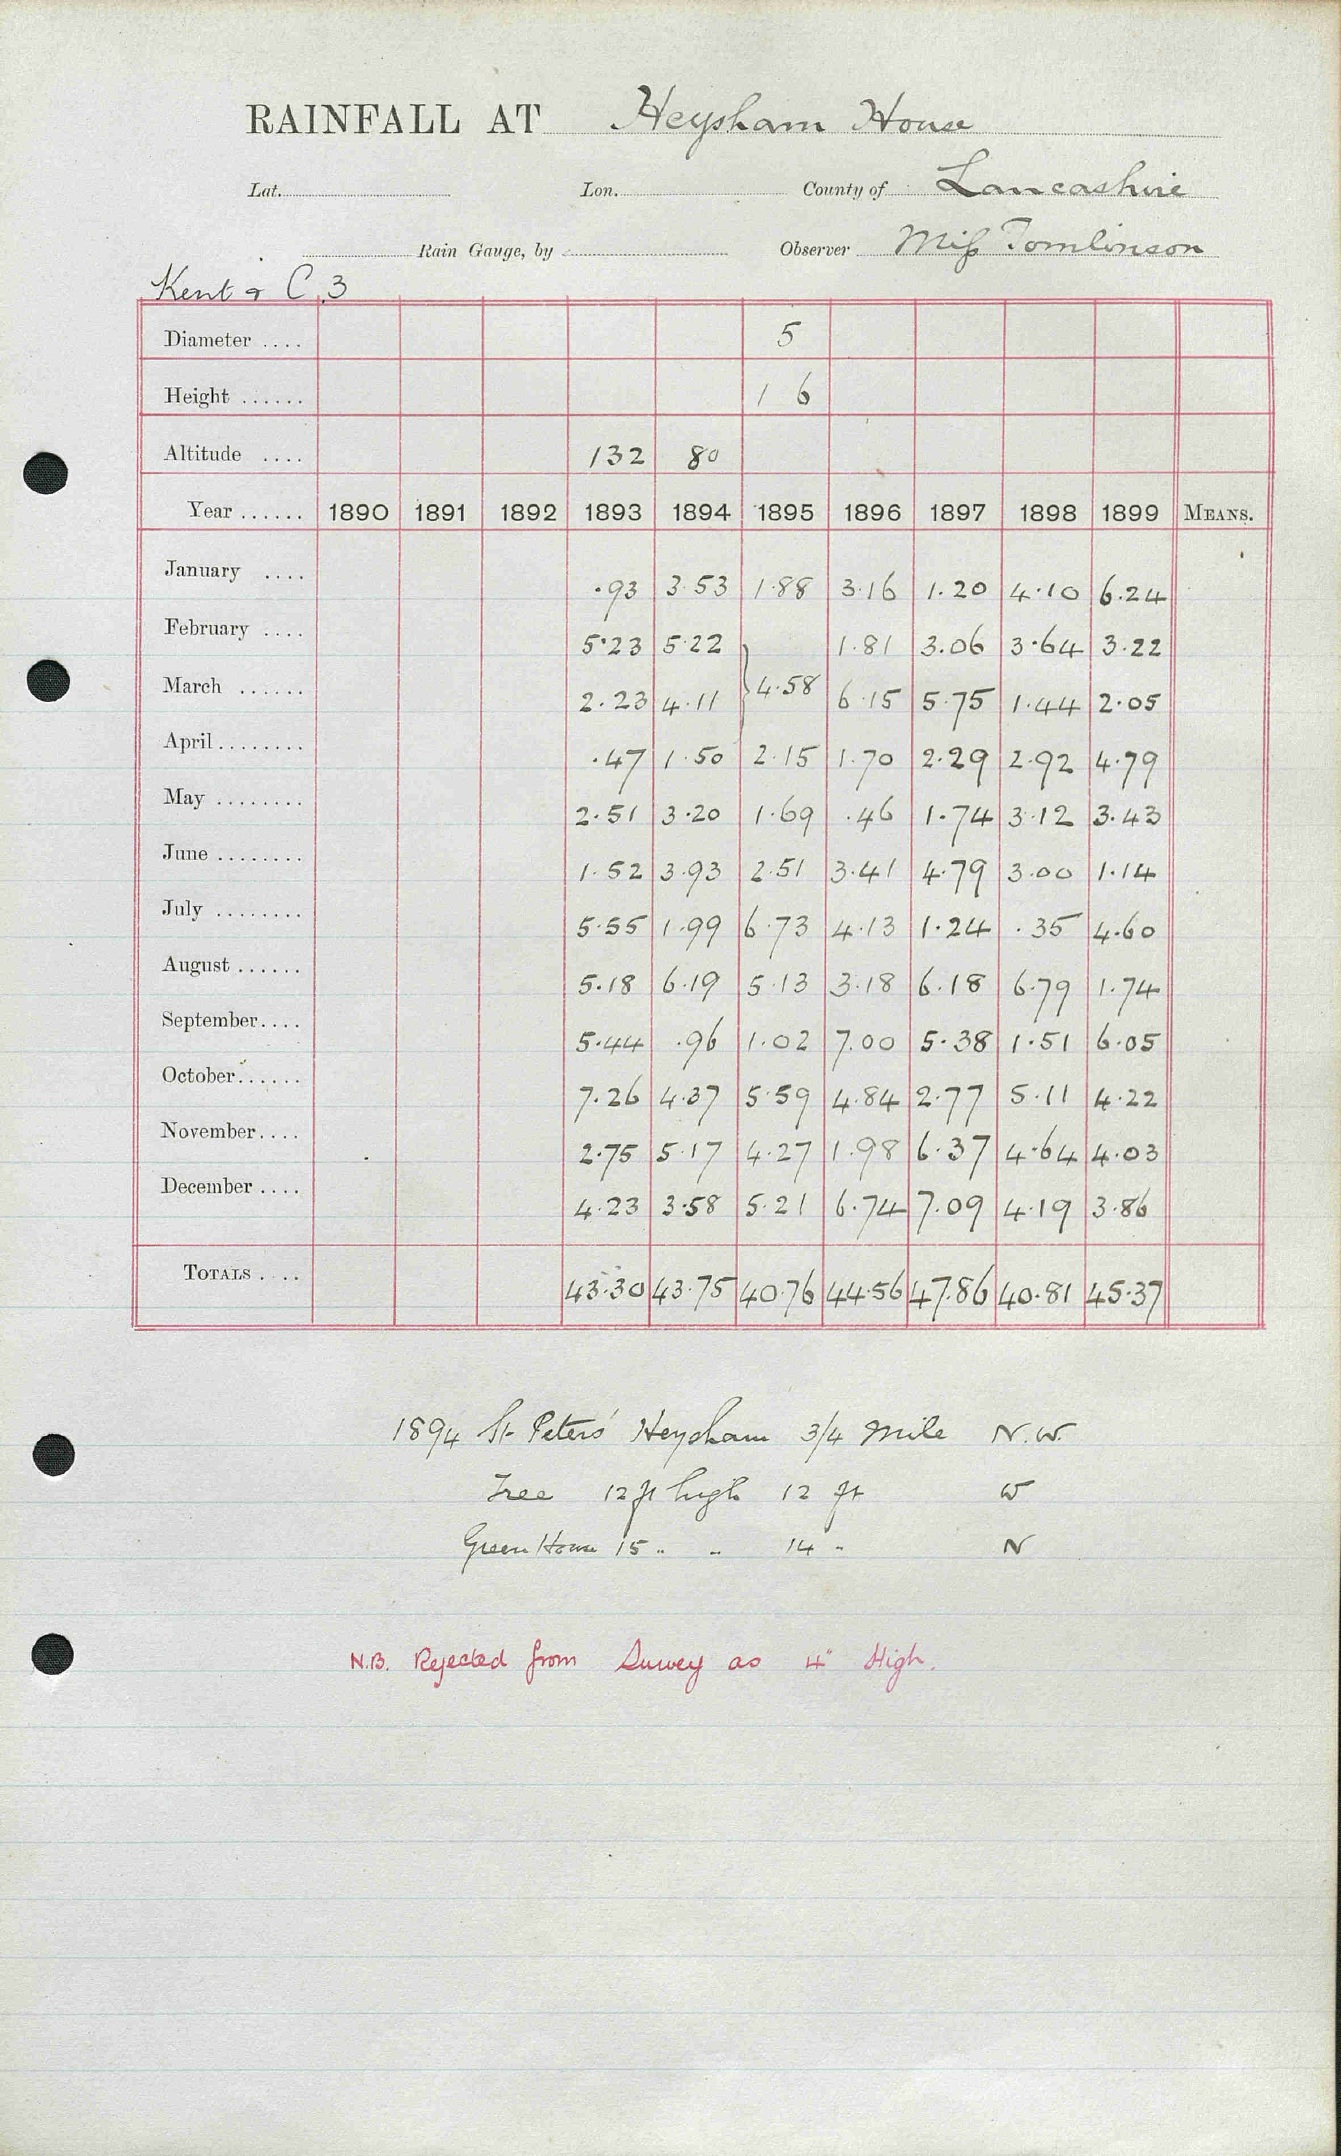 RAINFALL AT Heysham House
Lat. Lon. County of Lancashire
Rain Gauge, by Observer Miss Tomlinson
Kent & C. 3
Diameter .... 5
Height ...... 1 6
Altitude .... 132 80
Year ...... 1890 1891 1892 1893 1894 1895 1896 1897 1898 1899 MEANS.
January .... .93 3.53 1.88 3.16 1.20 4.10 6.24
February .... 5.23 5.22 1.81 3.06 3.64 3.22
March ...... 2.23 4.11 } 4.58 6.15 5.75 1.44 2.05
April ........ .47 1.50 2.15 1.70 2.29 2.92 4.79
May ........ 2.51 3.20 1.69 .46 1.74 3.12 3.43
June ........ 1.52 3.93 2.51 3.41 4.79 3.00 1.14
July ........ 5.55 1.99 6.73 4.13 1.24 .35 4.60
August ...... 5.18 6.19 5.13 3.18 6.18 6.79 1.74
September .... 5.44 .96 1.02 7.00 5.38 1.51 6.05
October ...... 7.26 4.37 5.59 4.84 2.77 5.11 4.22
November .... 2.75 5.17 4.27 1.98 6.37 4.64 4.03
December .... 4.23 3.58 5.21 6.74 7.09 4.19 3.86
TOTALS .... 43.30 43.75 40.76 44.56 47.86 40.81 45.37
1894 St Peters' Heysham 3/4 Mile N.W.
Tree 12 ft high 12 ft W
Green House 15 " " 14 " N
N.B. Rejected from Survey as 4" High.